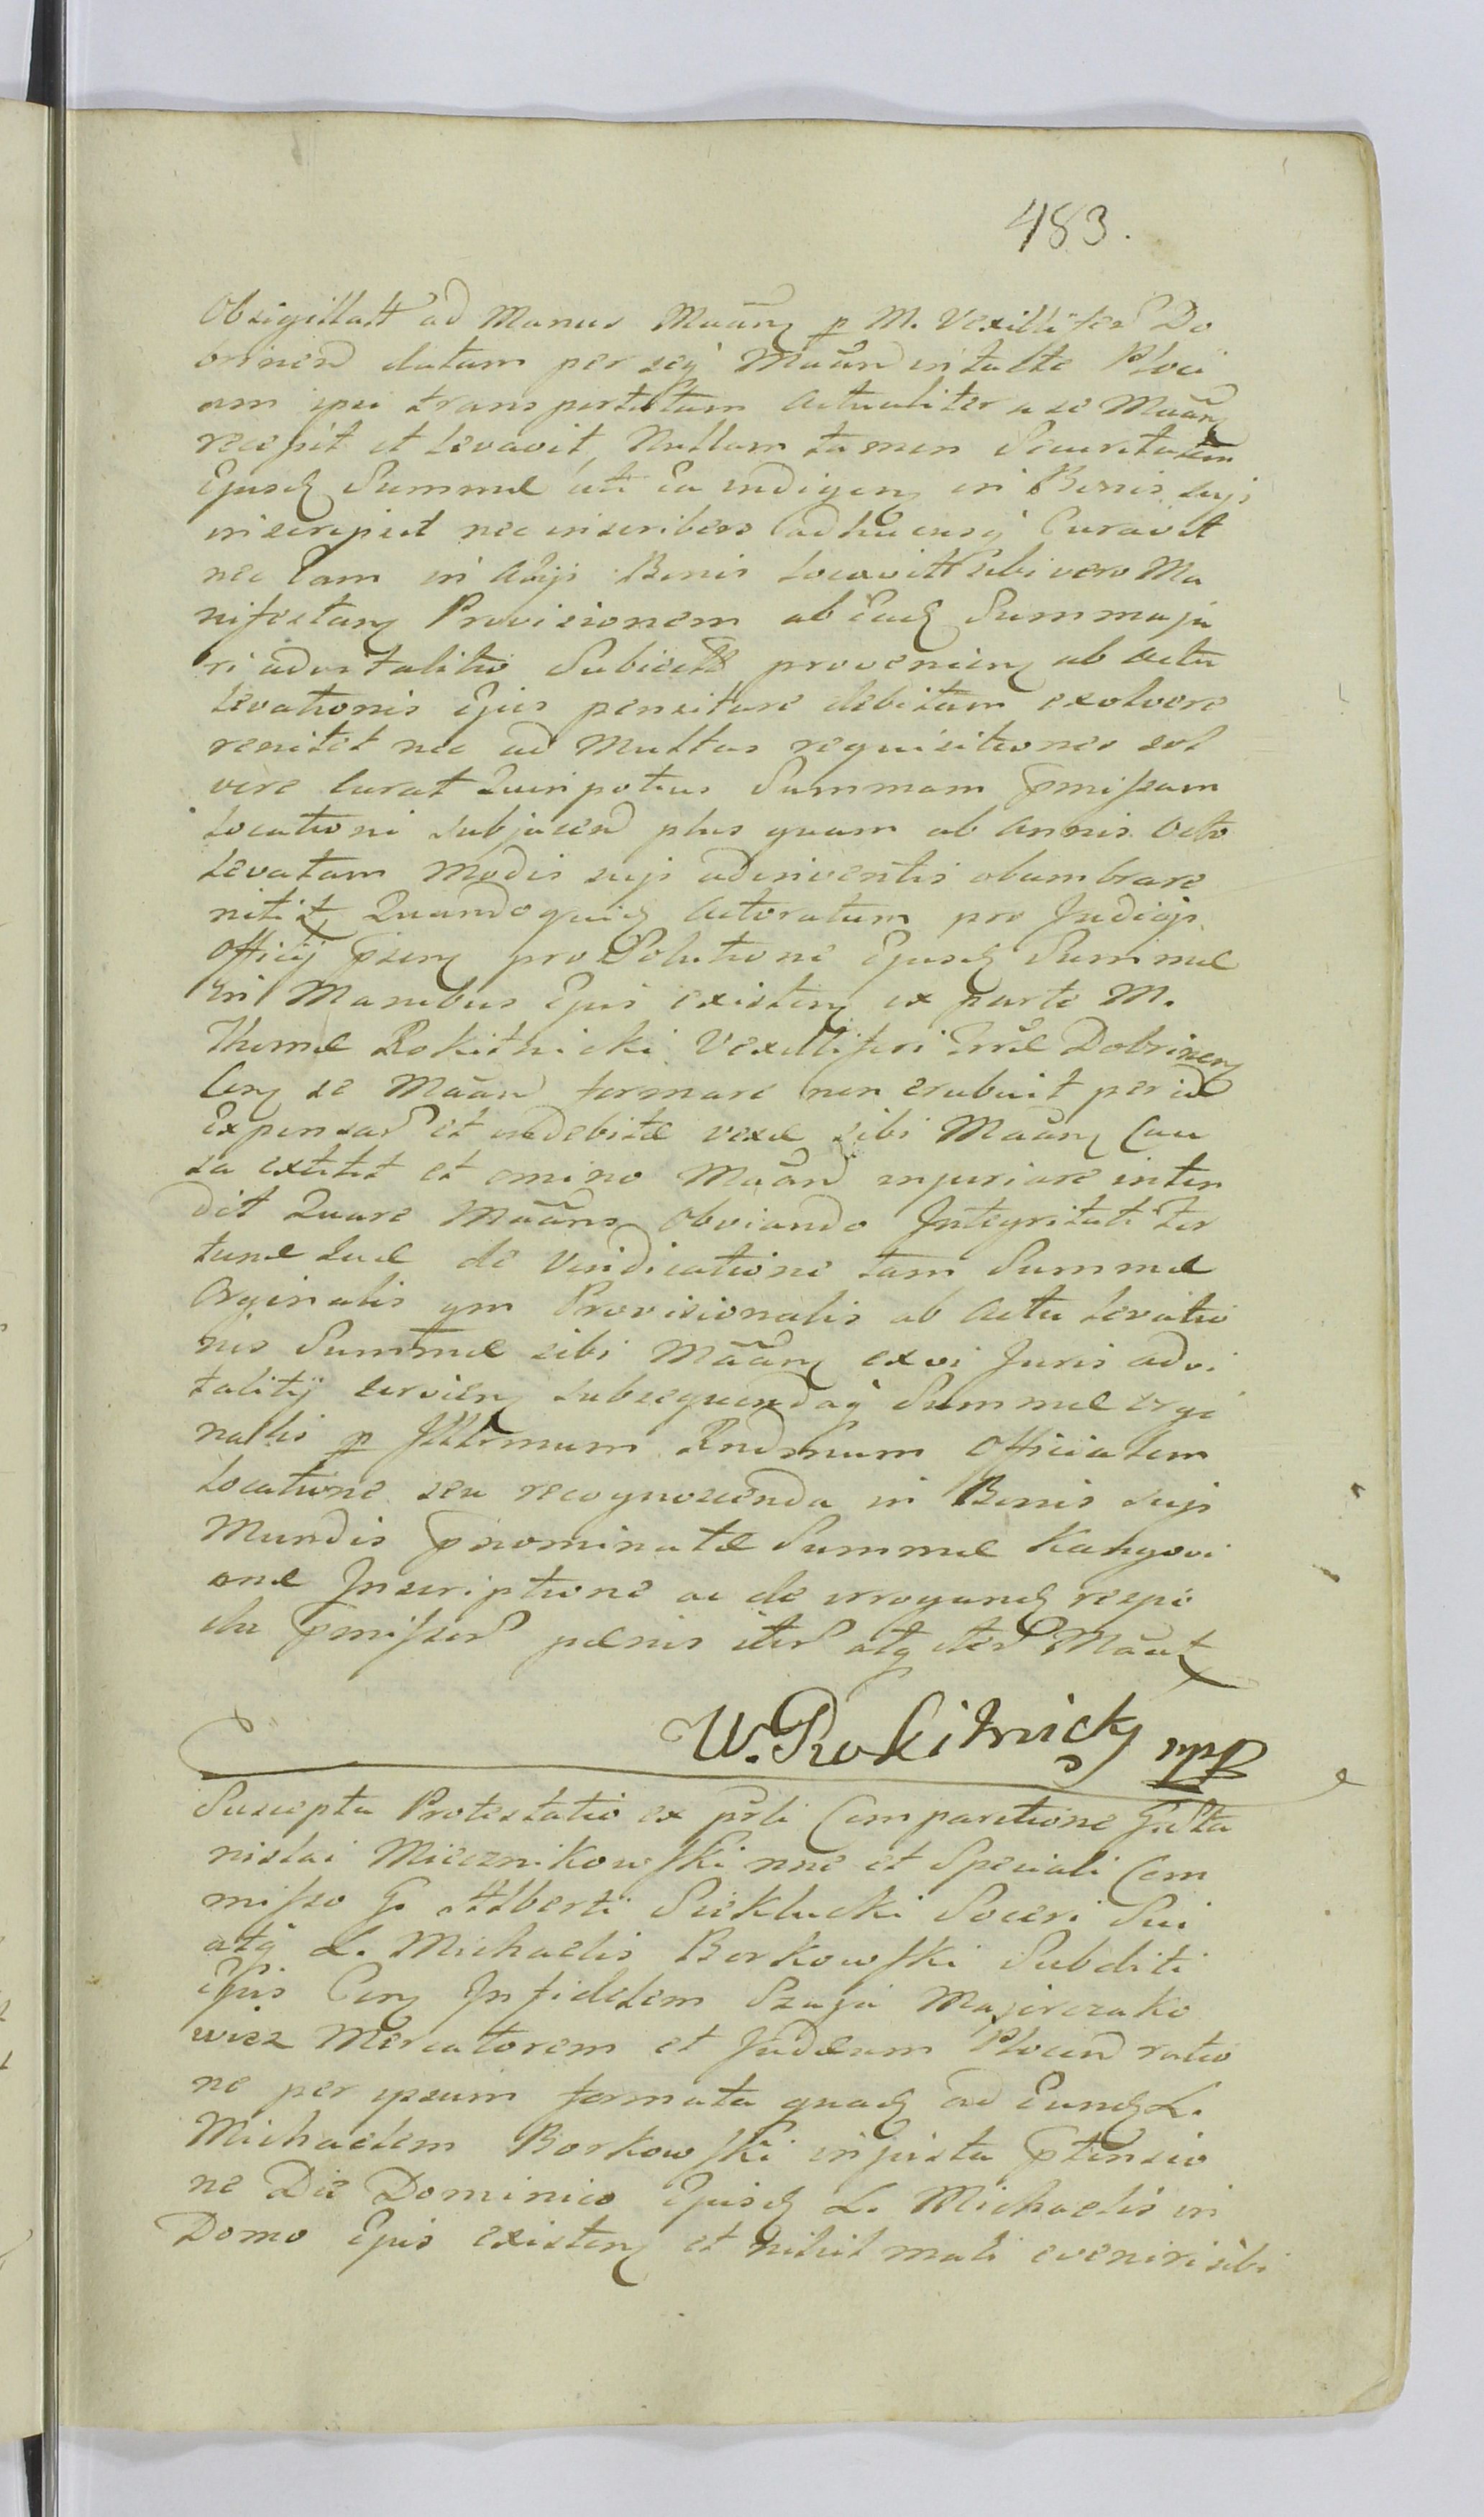 483.
Obsigillatt ad Manus Mãanɀ p M. Vexilliferd Do
brinend datum per seq Mãand intacte Ploci
am ipsi transportatum actualiter a se Mãanɀ
recepit et levavit, Nullam tamen Securitatem
Ejusdɀ Summæ uti Ea indigenɀ in Bonis sujs
inscripsit nec inscribere adhucusqɀ Curavit
nec Eam in alijs Bonis locavit sibi vero Ma
nifestanɀ Provisionem ab Eadɀ Summa ju
ri advitalitio Subiectt provenienɀ ab actu
levationis Ejus pensitare debitam exolvere
renitet nec ad Multas requisitiones sol
vere curat Quinpotius Summam pmissam
locationi subjacend plus quam ab annis Octo
levatam Modis sujs adinventis obumbrare
nititɀ Quandoquidɀ Actoratum pro Judicijs
Officij psenɀ pro Solutione Ejusdɀ Summæ
in Manibus Ejus existenɀ ex parte M.
Thomæ Rokitnicki Vexilliferi Trræ Dobrinenɀ
Conɀ se Mãand formare non erubuit per id
Expensard et indebitæ vexæ sibi Mãanɀ Cau
sa extitit et omino Mãand injuriare inten
dit Quare Mãans obviando Integritati For
tunæ suæ de Vindicatione tam Summæ
Orginalis qm Provisionalis ab actu levatio
nis Summæ sibi Mãanɀ ex vi Juris advi
talitij servienɀ subsequendaq Summæ orgi
nalis p Illrmum Rndsmum Officialem
locatione seu recognoscenda in Bonis sujs
Mundis pnominatæ Summæ Kaligowi
anæ Inscriptione ac de irrogandɀ respe
ctu pmissord pænis iterd atq iterd Mãatɀ
W. Rokitnicky mp
Suscepta Protestatio ex prli Comparitione G. Sta
nislai Miecznikowski nne et Speciali Com
misso G. Alberti Sieklucki Soceri Sui
atq L. Michaelis Borkowski Subditi
Ejus Conɀ Infidelem Szaja Majerczako
wicz Mercatorem et Judæum Plocend ratio
ne per ipsum formata quadɀ ad Eundɀ L.
Michaelem Borkowski injusta ptensio
ne Die Dominico Ejusdɀ L. Michaelis in
Domo Ejus existenɀ et nihil mali eveniri sibi